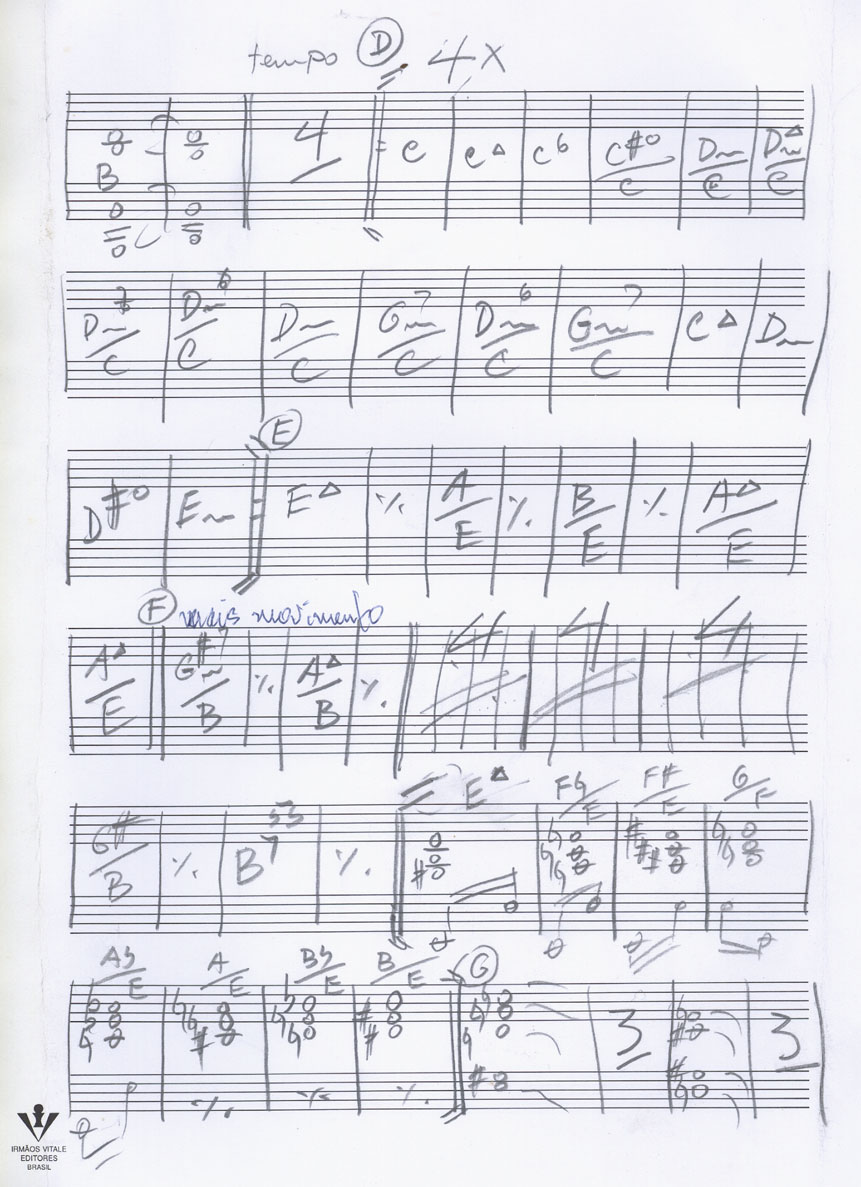 tempo D 4x
B 4 C C△ C6 C#o/C Dm/C Dm△/C
Dm7/C Dm6/C Dm/C Gm7/C Dm6/C Gm7/C C△ Dm
E
D#o Em E△ ٪ A/E ٪ B/E ٪ A△/E
F mais movimento
A△/E G#m7/B ٪ A△/B ٪ 4 4 4
E△ F♮/E F#/E G/F
G#/B ٪ B7 ٪
A♭/E A/E B♭/E B/E G
3 3
٪ ٪ ٪
IRMÃOS VITALE
EDITORES
BRASIL